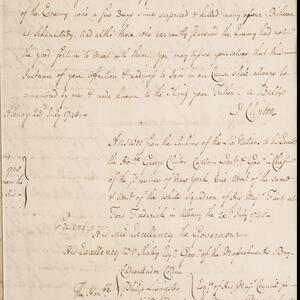 of the Enemy, who a few days since surprized & killed many of our Brethren
at Schenectady, and altho those who earnestly pursued the Enemy had not
the good fortune to meet with them, you may assure yourselves that this
Instance of your Affection & readiness to Join in our Cause shall always be
remembered by me & made known to the King your Father. A Belt
G: Clinton
Albany 23d July 1748
Answer from the Indians of the Six Nations to his Excelly
the Honble George Clinton Captain Genl & Govr in Chief
of the Province of New York, Vice Adml of the same
& Adml of the White Squadron of his Majts Fleet at
Fort Frederick in Albany the 26th July 1748
Present
His said Excellency the Governour
His Excellency Wm Shirley Esqr Govr of the Massachusets Bay
The Honble
Cadwallader Colden
Philip Livingston
Esqrs of His Majts Council for
1748
from the